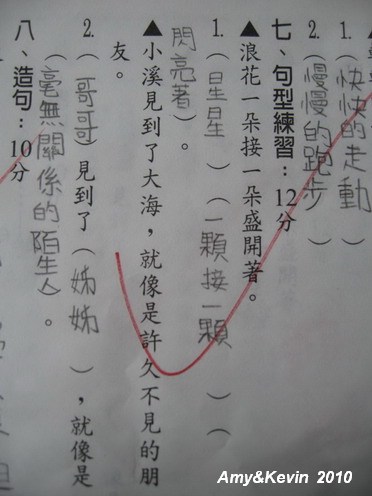 1.（快快的走動）
2.（慢慢的跑步）
七、句型練習：12分
▲浪花一朵接一朵盛開著。
1.（星星）（一顆接一顆）（
閃亮著）。
▲小溪見到了大海，就像是許久不見的朋
友。
2.（哥哥）見到了（姊姊），就像是
（毫無關係的陌生人）。
八、造句：10分
Amy&Kevin 2010